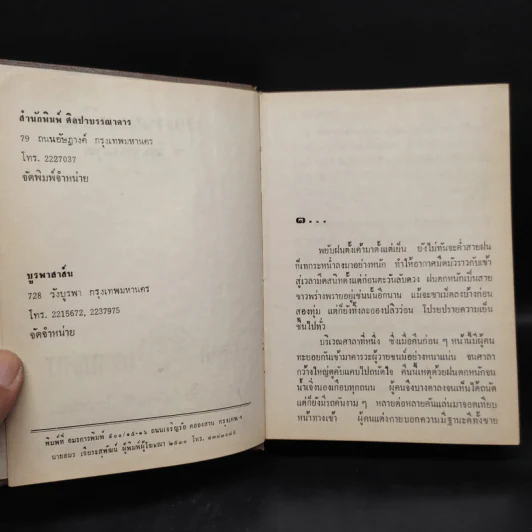 สำนักพิมพ์ ศิลปาบรรณาคาร
79 ถนนอัษฎางค์ กรุงเทพมหานคร
โทร. 2227037
จัดพิมพ์จำหน่าย
บูรพาสาส์น
728 วังบูรพา กรุงเทพมหานคร
โทร. 2215672, 2237975
จัดจำหน่าย
พิมพ์ที่ อมรการพิมพ์ ๕๐๑/๑๕-๑๖ ถนนเจริญรัถ คลองสาน กรุงเทพ ฯ
นายอมร เจียระสุพัฒน์ ผู้พิมพ์ผู้โฆษณา โทร.
๑...
พยับฝนตั้งเค้ามาตั้งแต่เย็น ยังไม่ทันจะค่ำสายฝน
ก็เทกระหน่ำลงมาอย่างหนัก ทำให้อากาศมืดมัวราวกับเข้า
สู่เวลามืดสนิทตั้งแต่ก่อนตะวันลับดวง ฝนตกหนักเป็นสาย
ขาวพร่างพรายอยู่เช่นนั้นอีกนาน แม้จะขาเม็ดลงบ้างก่อน
สองทุ่ม แต่ก็ยังทิ้งละอองปลิวร่อน โปรยปรายความเย็น
ชื้นไปทั่ว
บริเวณศาลาที่หนึ่ง ซึ่งเมื่อคืนก่อน ๆ หน้านี้มีผู้คน
ทะยอยกันเข้ามาคารวะผู้วายชนม์อย่างหนาแน่น จนศาลา
กว้างใหญ่ดูคับแคบไปถนัดใจ คืนนี้เหตุด้วยฝนตกหนักจน
น้ำเจิ่งนองเกือบทุกถนน ผู้คนจึงบางตาลงจนเห็นได้ถนัด
แต่ก็ยังมีรถคันงาม ๆ หลายต่อหลายคันแล่นมาจอดเทียบ
หน้าทางเข้า ผู้คนแต่งกายบอกความมีฐานะดีทั้งชาย